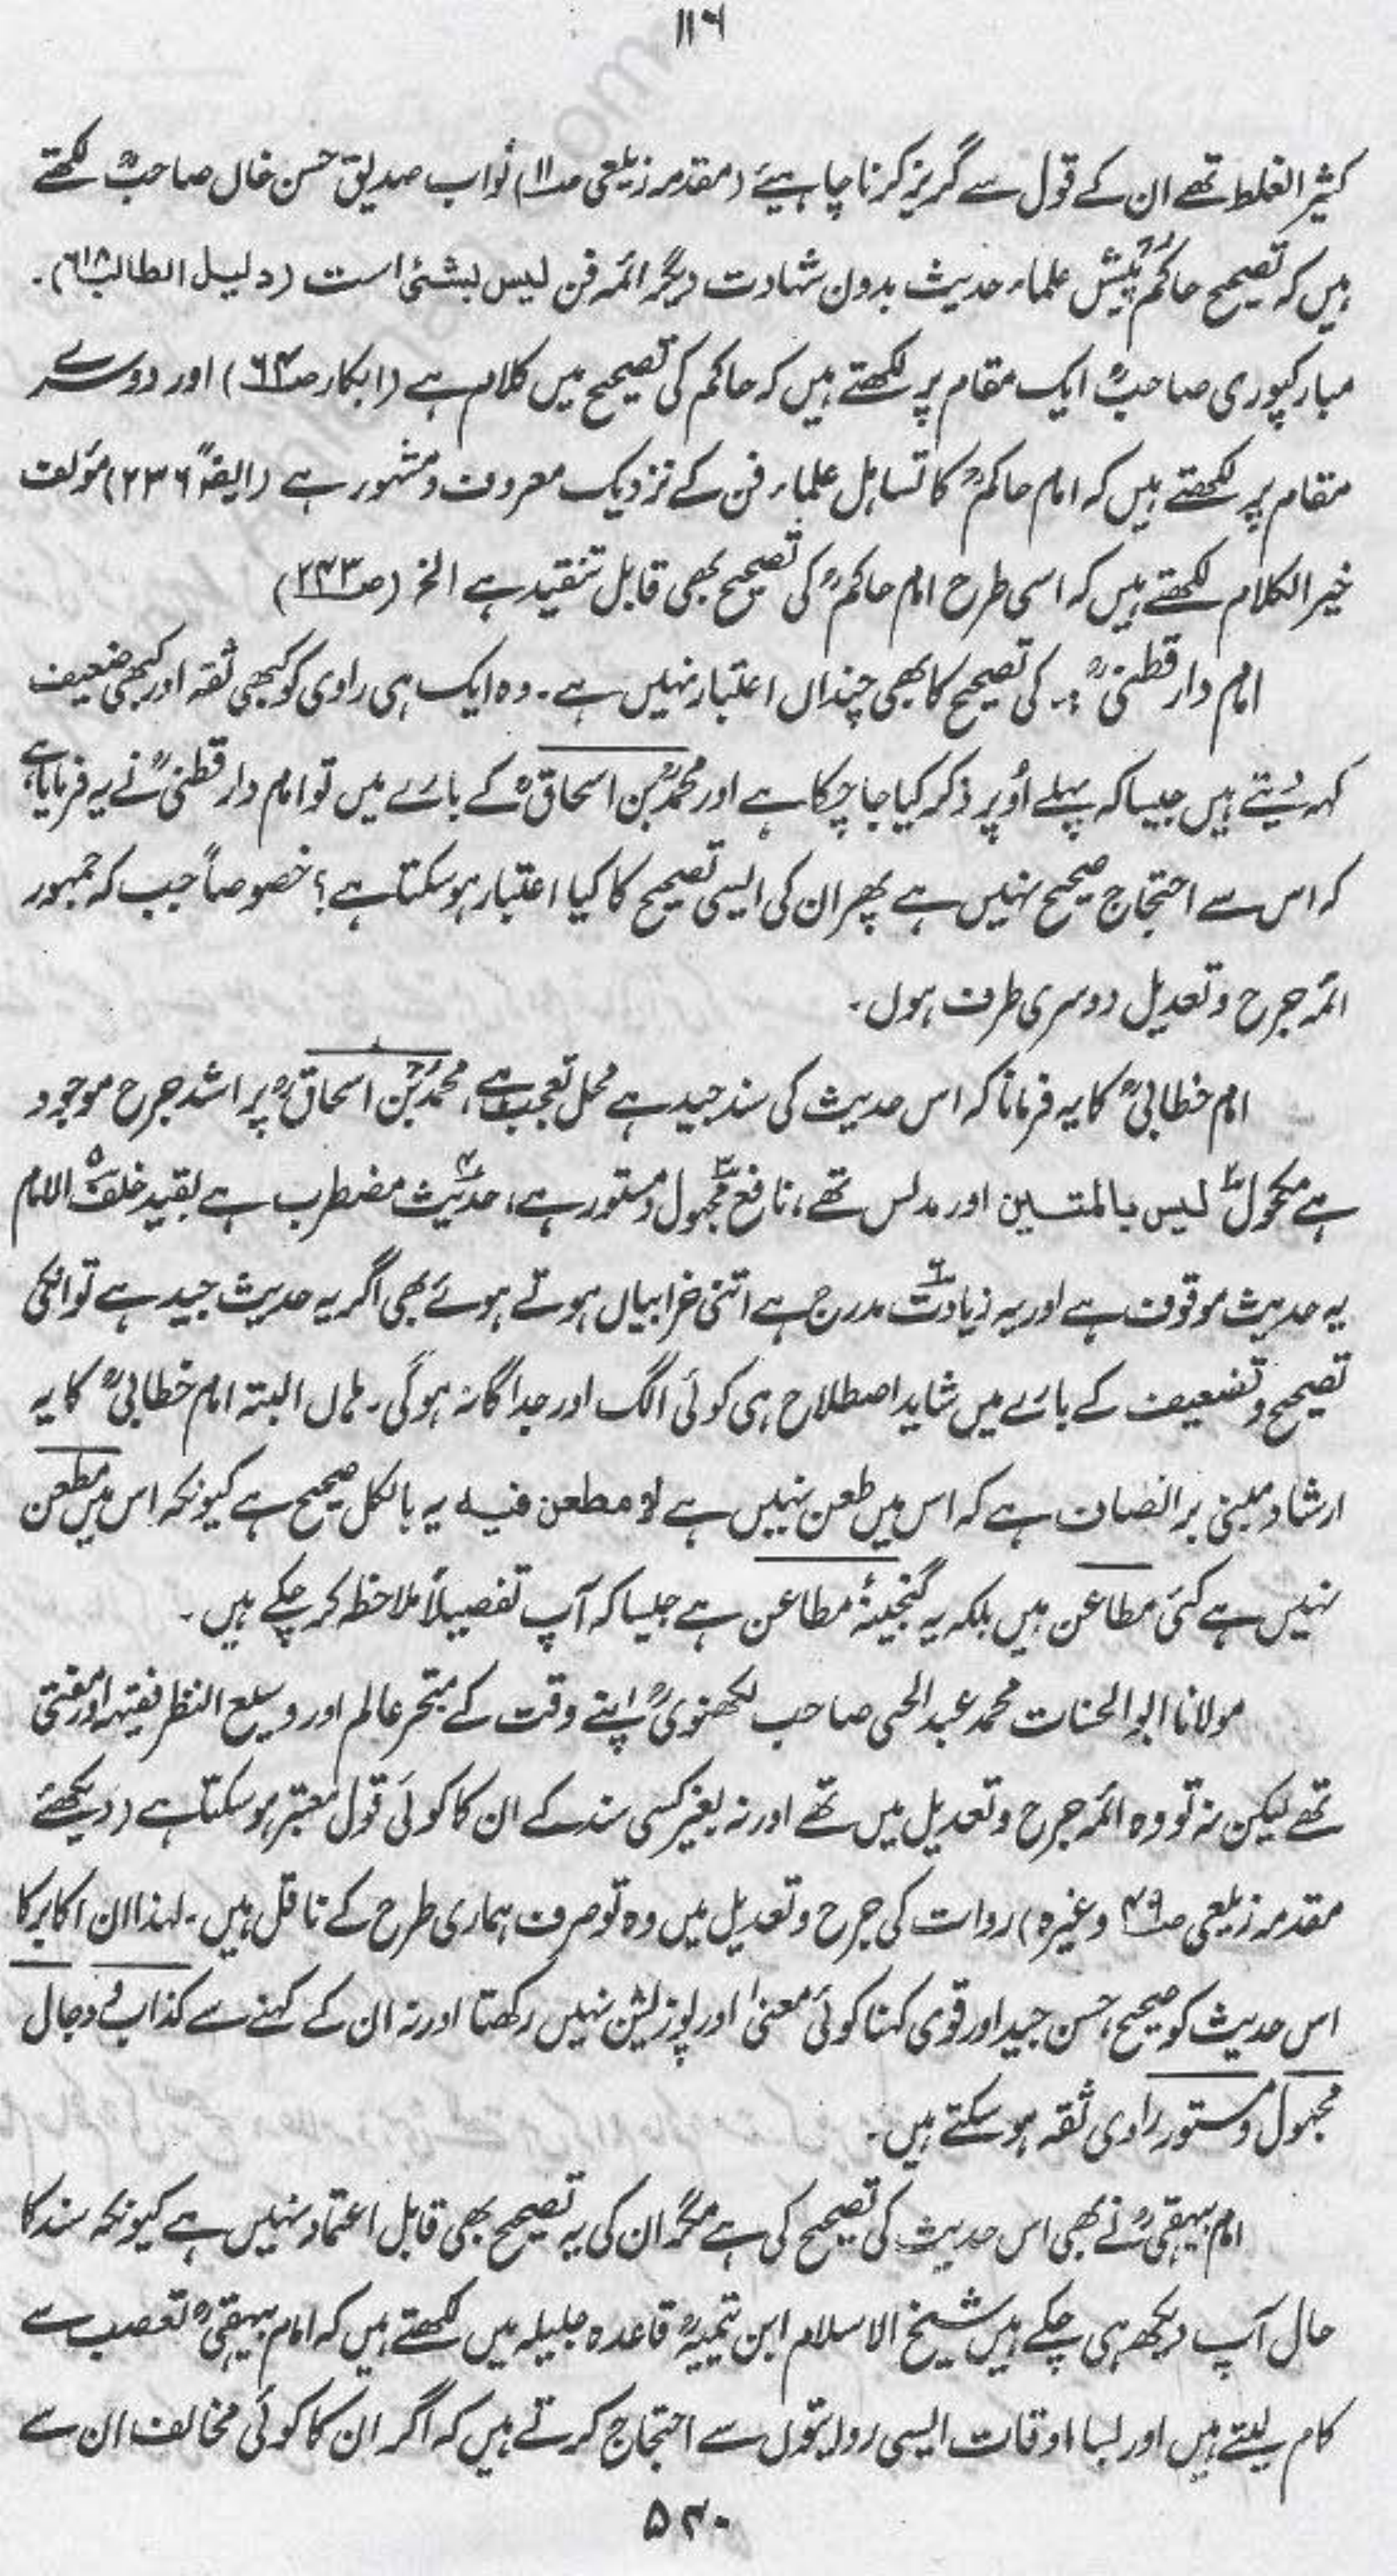 ۱۱۶
کثیر الغلط تھے ان کے قول سے گریز کرنا چاہیئے (مقدمہ زیلعی صـ۱۱) نواب صدیق حسن خاں صاحبؒ لکھتے
ہیں کہ تصحیح حاکمؒ پیش علماء حدیث بدون شہادت دیگر ائمہ فن لیس بشئی است (دلیل الطالب ۶۱۸)۔
مبارکپوری صاحبؒ ایک مقام پر لکھتے ہیں کہ حاکم کی تصحیح میں کلام ہے (ابکار صـ۶۴) اور دوسرے
مقام پر لکھتے ہیں کہ امام حاکمؒ کا تساہل علماء فن کے نزدیک معروف و مشہور ہے (ایضاً ۲۳۶) مؤلف
خیر الکلام لکھتے ہیں کہ اسی طرح امام حاکمؒ کی تصحیح بھی قابل تنقید ہے الخ (صـ۲۴۳)
امام دارقطنیؒ:۔ کی تصحیح کا بھی چنداں اعتبار نہیں ہے۔ وہ ایک ہی راوی کو کبھی ثقہ اور کبھی ضعیف
کہہ دیتے ہیں جیسا کہ پہلے اُوپر ذکر کیا جا چکا ہے اور محمدؒ بن اسحاقؒ کے بارے میں تو امام دارقطنیؒ نے یہ فرمایا ہے
کہ اس سے احتجاج صحیح نہیں ہے پھر ان کی ایسی تصحیح کا کیا اعتبار ہو سکتا ہے؟ خصوصاً جب کہ جمہور
ائمہ جرح و تعدیل دوسری طرف ہوں۔
امام خطابیؒ کا یہ فرمانا کہ اس حدیث کی سند جید ہے محل تعجب ہے، محمدؒ بن اسحاقؒ پر اشد جرح موجود
ہے مکحولؒ ۲ لیس بالمتین اور مدلس تھے، نافع ۳ مجہول و مستور ہے، حدیث ۴ مضطرب ہے بقید خلف ۵ الامام
یہ حدیث موقوف ہے اور یہ زیادت ۶ مدرج ہے اتنی خرابیاں ہوتے ہوئے بھی اگر یہ حدیث جید ہے تو انکی
تصحیح و تضعیف کے بارے میں شاید اصطلاح ہی کوئی الگ اور جداگانہ ہوگی۔ ہاں البتہ امام خطابیؒ کا یہ
ارشاد مبنی بر انصاف ہے کہ اس میں طعن نہیں ہے لا مطعن فیہ یہ بالکل صحیح ہے کیونکہ اس میں مطعن
نہیں ہے کئی مطاعن ہیں بلکہ یہ گنجینۂ مطاعن ہے جیسا کہ آپ تفصیلاً ملاحظہ کر چکے ہیں۔
مولانا ابوالحسنات محمد عبدالحی صاحب لکھنویؒ اپنے وقت کے متبحر عالم اور وسیع النظر فقیہ اور مفتی
تھے لیکن نہ تو وہ ائمہ جرح و تعدیل میں تھے اور نہ بغیر کسی سند کے ان کا کوئی قول معتبر ہو سکتا ہے (دیکھئے
مقدمہ زیلعی صـ۴۹ وغیرہ) روات کی جرح و تعدیل میں وہ تو صرف ہماری طرح کے ناقل ہیں۔ لہٰذا ان اکابر کا
اس حدیث کو صحیح، حسن جید اور قوی کہنا کوئی معنیٰ اور پوزیشن نہیں رکھتا اور نہ ان کے کہنے سے کذاب و دجال
مجہول و مستور راوی ثقہ ہو سکتے ہیں۔
امام بیہقیؒ نے بھی اس حدیث کی تصحیح کی ہے مگر ان کی یہ تصحیح بھی قابل اعتماد نہیں ہے کیونکہ سند کا
حال آپ دیکھ ہی چکے ہیں شیخ الاسلام ابن تیمیہؒ قاعدہ جلیلہ میں لکھتے ہیں کہ امام بیہقیؒ تعصب سے
کام لیتے ہیں اور بسا اوقات ایسی روایتوں سے احتجاج کرتے ہیں کہ اگر ان کا کوئی مخالف ان سے
۵۲۰